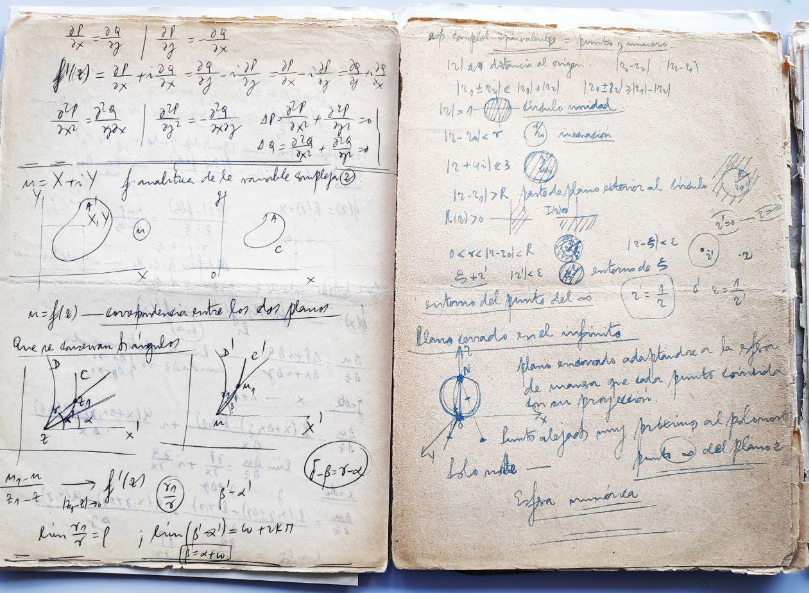 ∂P/∂x = ∂Q/∂y | ∂P/∂y = -∂Q/∂x
f'(z) = ∂P/∂x + i ∂Q/∂x = ∂Q/∂y - i ∂P/∂y = ∂P/∂x - i ∂P/∂y = ∂Q/∂y + i ∂Q/∂x
∂²P/∂x² = ∂²Q/∂y∂x | ∂²P/∂y² = -∂²Q/∂x∂y ΔP = ∂²P/∂x² + ∂²P/∂y² = 0
ΔQ = ∂²Q/∂x² + ∂²Q/∂y² = 0
u = X + iY f. analitica de la variable compleja (z)
Y A' X,Y u y A C
X 0 x
u = f(z) — correspondencia entre los dos planos
Que se conservan triángulos
D C D' C'
z x' u X'
δ-β=γ-α
u₁-u / z₁-z → f'(z) r₁/r β'-α'
|z₁-z|→0
lim r₁/r = ρ ; lim (β'-α') = ω + 2kπ
β = α + ω
puntos y numero
|z| distancia al origen |z₁-z₂| |z₂-z₁|
|z₁±z₂| ≤ |z₁|+|z₂| |z₁±z₂| ≥ |z₁|-|z₂|
|z| = 1 circulo unidad
|z-z₀| < r z₀
|z+4i| ≤ 3
|z-z₀| > R parte de plano exterior al circulo z₀
R(z) > 0 I(z)
0 < r < |z-z₀| < R |z-ξ| < ε
ξ + z' |z'| < ε entorno de ξ
entorno del punto del ∞ z' = 1/z ó z = 1/z'
Plano cerrado en el infinito
z N
plano encerrado adaptándose a la esfera
de manera que cada punto coincida
con su proyeccion.
Punto alejado muy próximo al polo norte
punto ∞ del plano z
Polo norte —
Esfera numerica